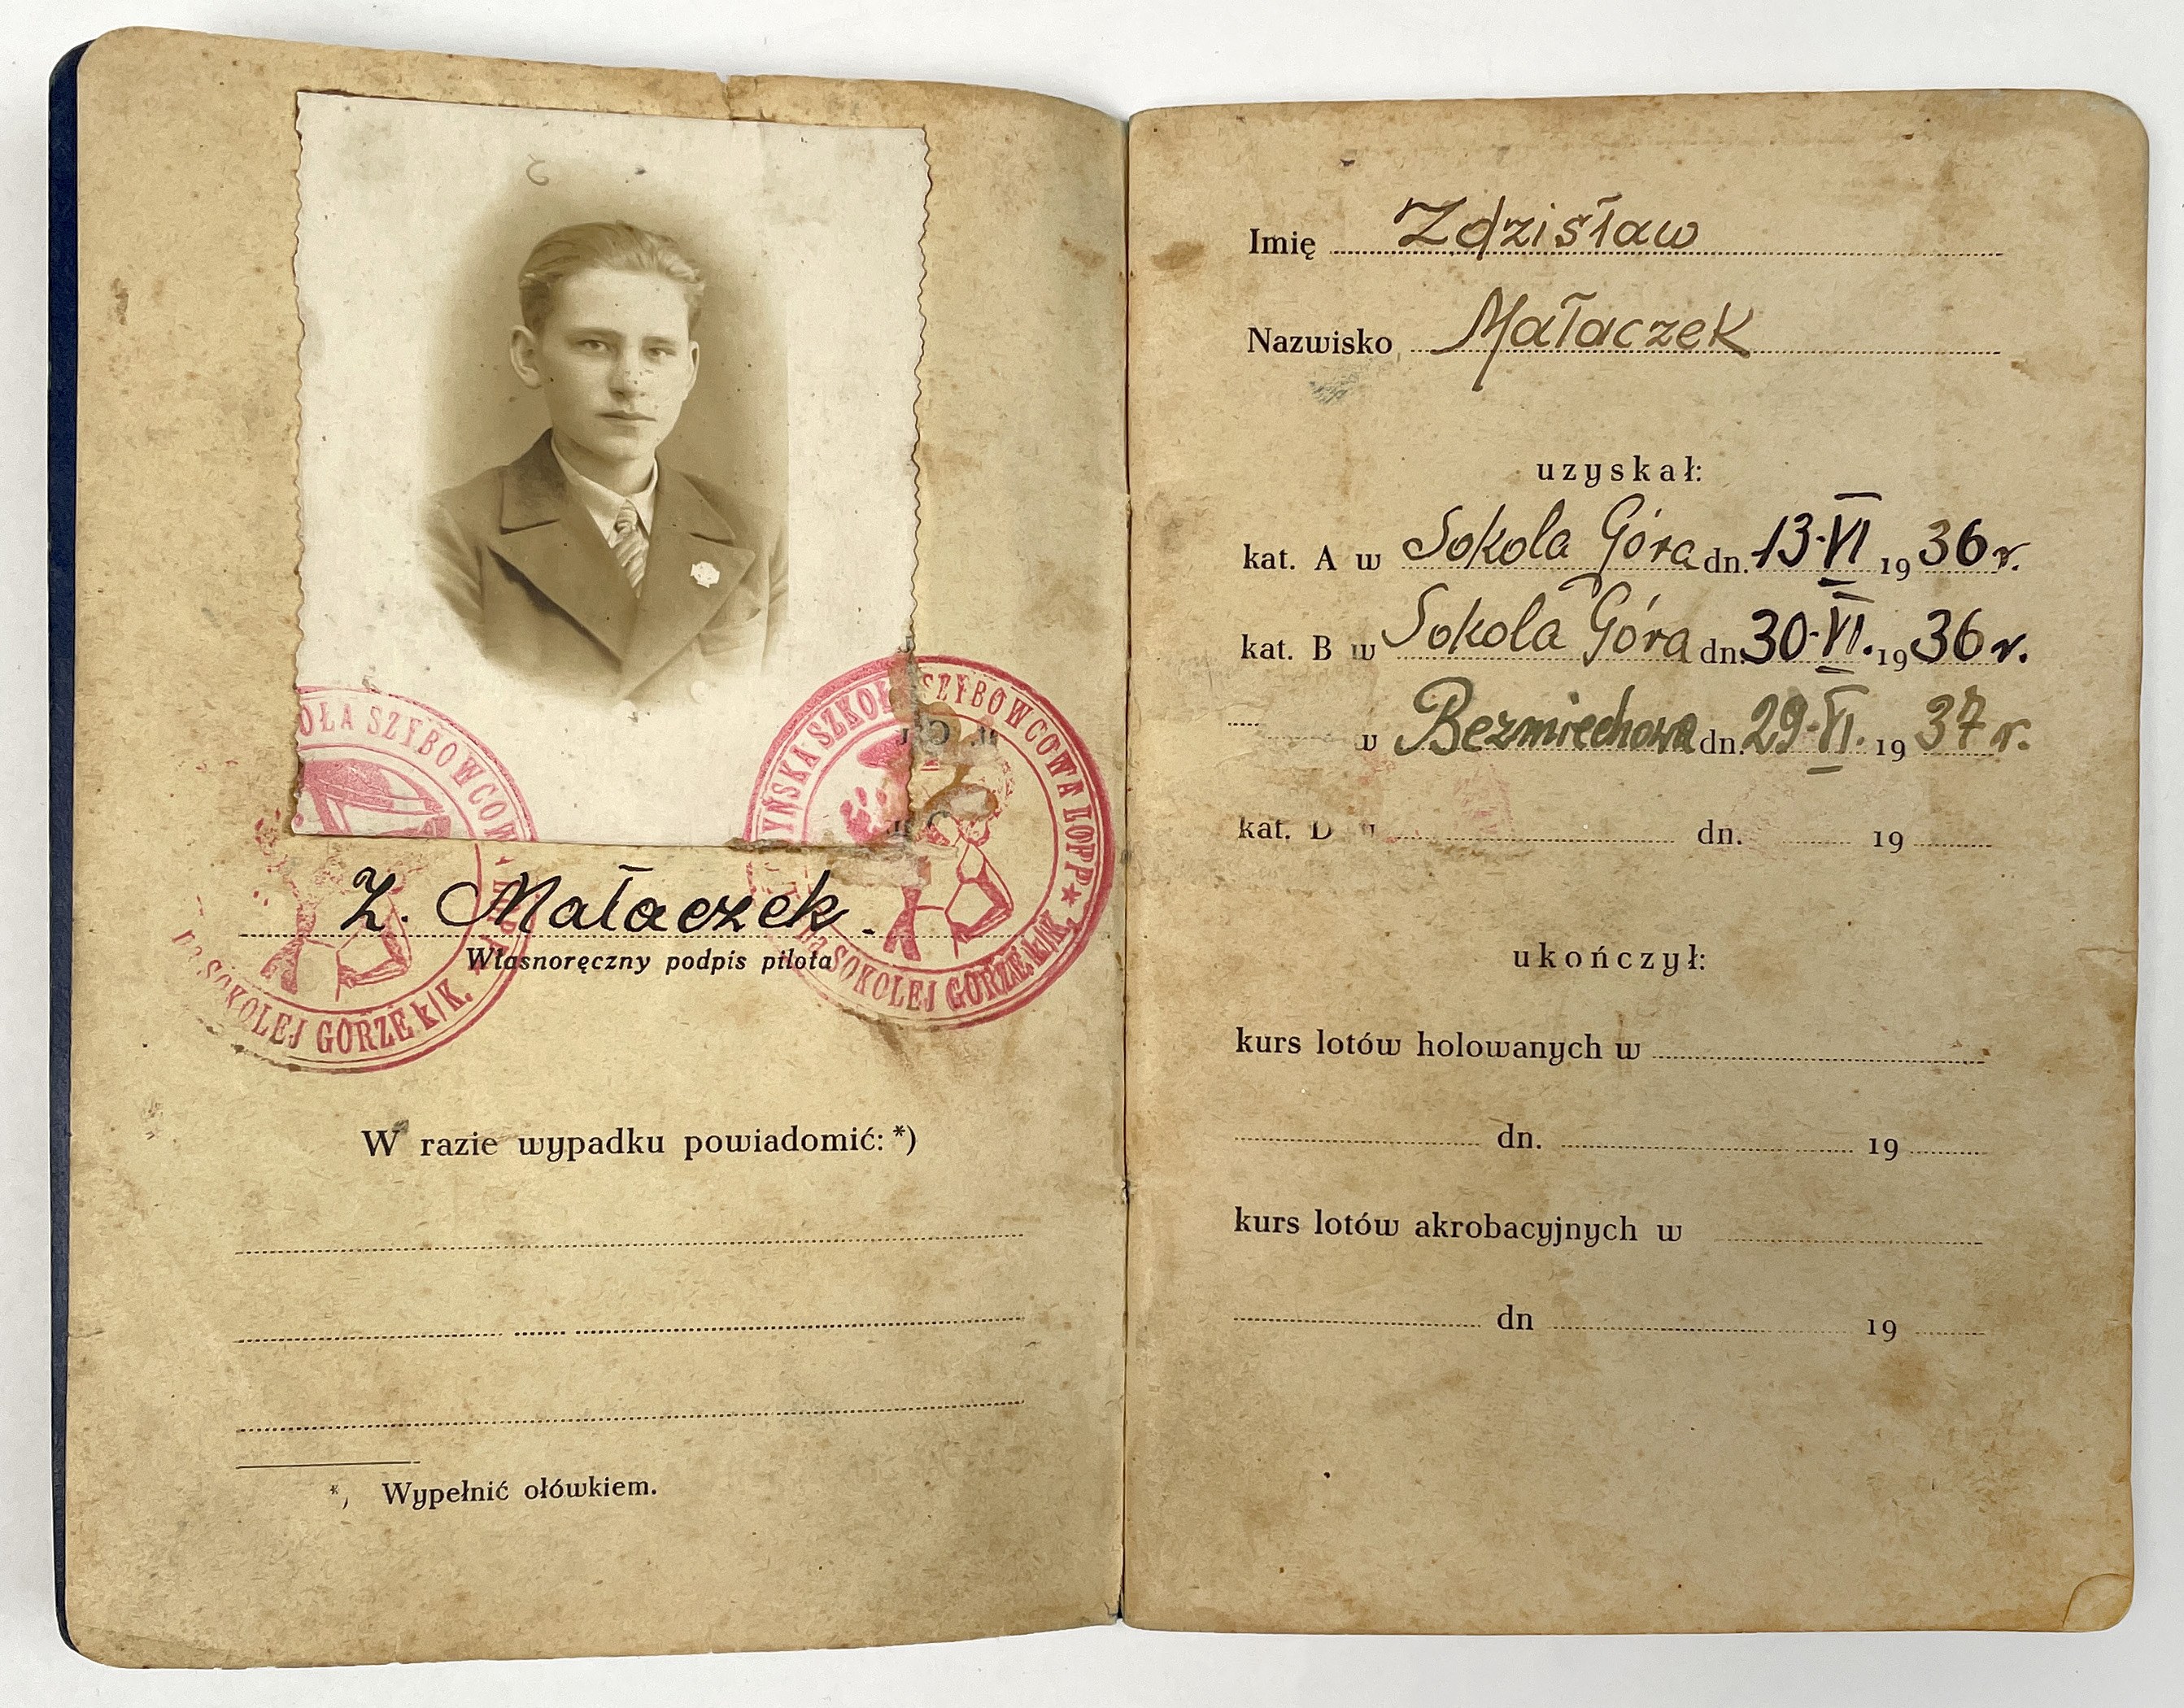 OŁA SZYBOWCOW
na SOKOLEJ GÓRZE k/K.
YŃSKA SZKOŁ SZYBOWCOWA LOPP ★
na SOKOLEJ GÓRZE k/K.
Z. Małaczek.
Własnoręczny podpis pilota
W razie wypadku powiadomić: *)
*) Wypełnić ołówkiem.
Imię Zdzisław
Nazwisko Małaczek
uzyskał:
kat. A w Sokola Góra dn. 13·VI 1936 r.
kat. B w Sokola Góra dn. 30·VI. 1936 r.
w Bezmiechowa dn. 29·VI. 1937 r.
kat. D w dn. 19
ukończył:
kurs lotów holowanych w
dn. 19
kurs lotów akrobacyjnych w
dn 19